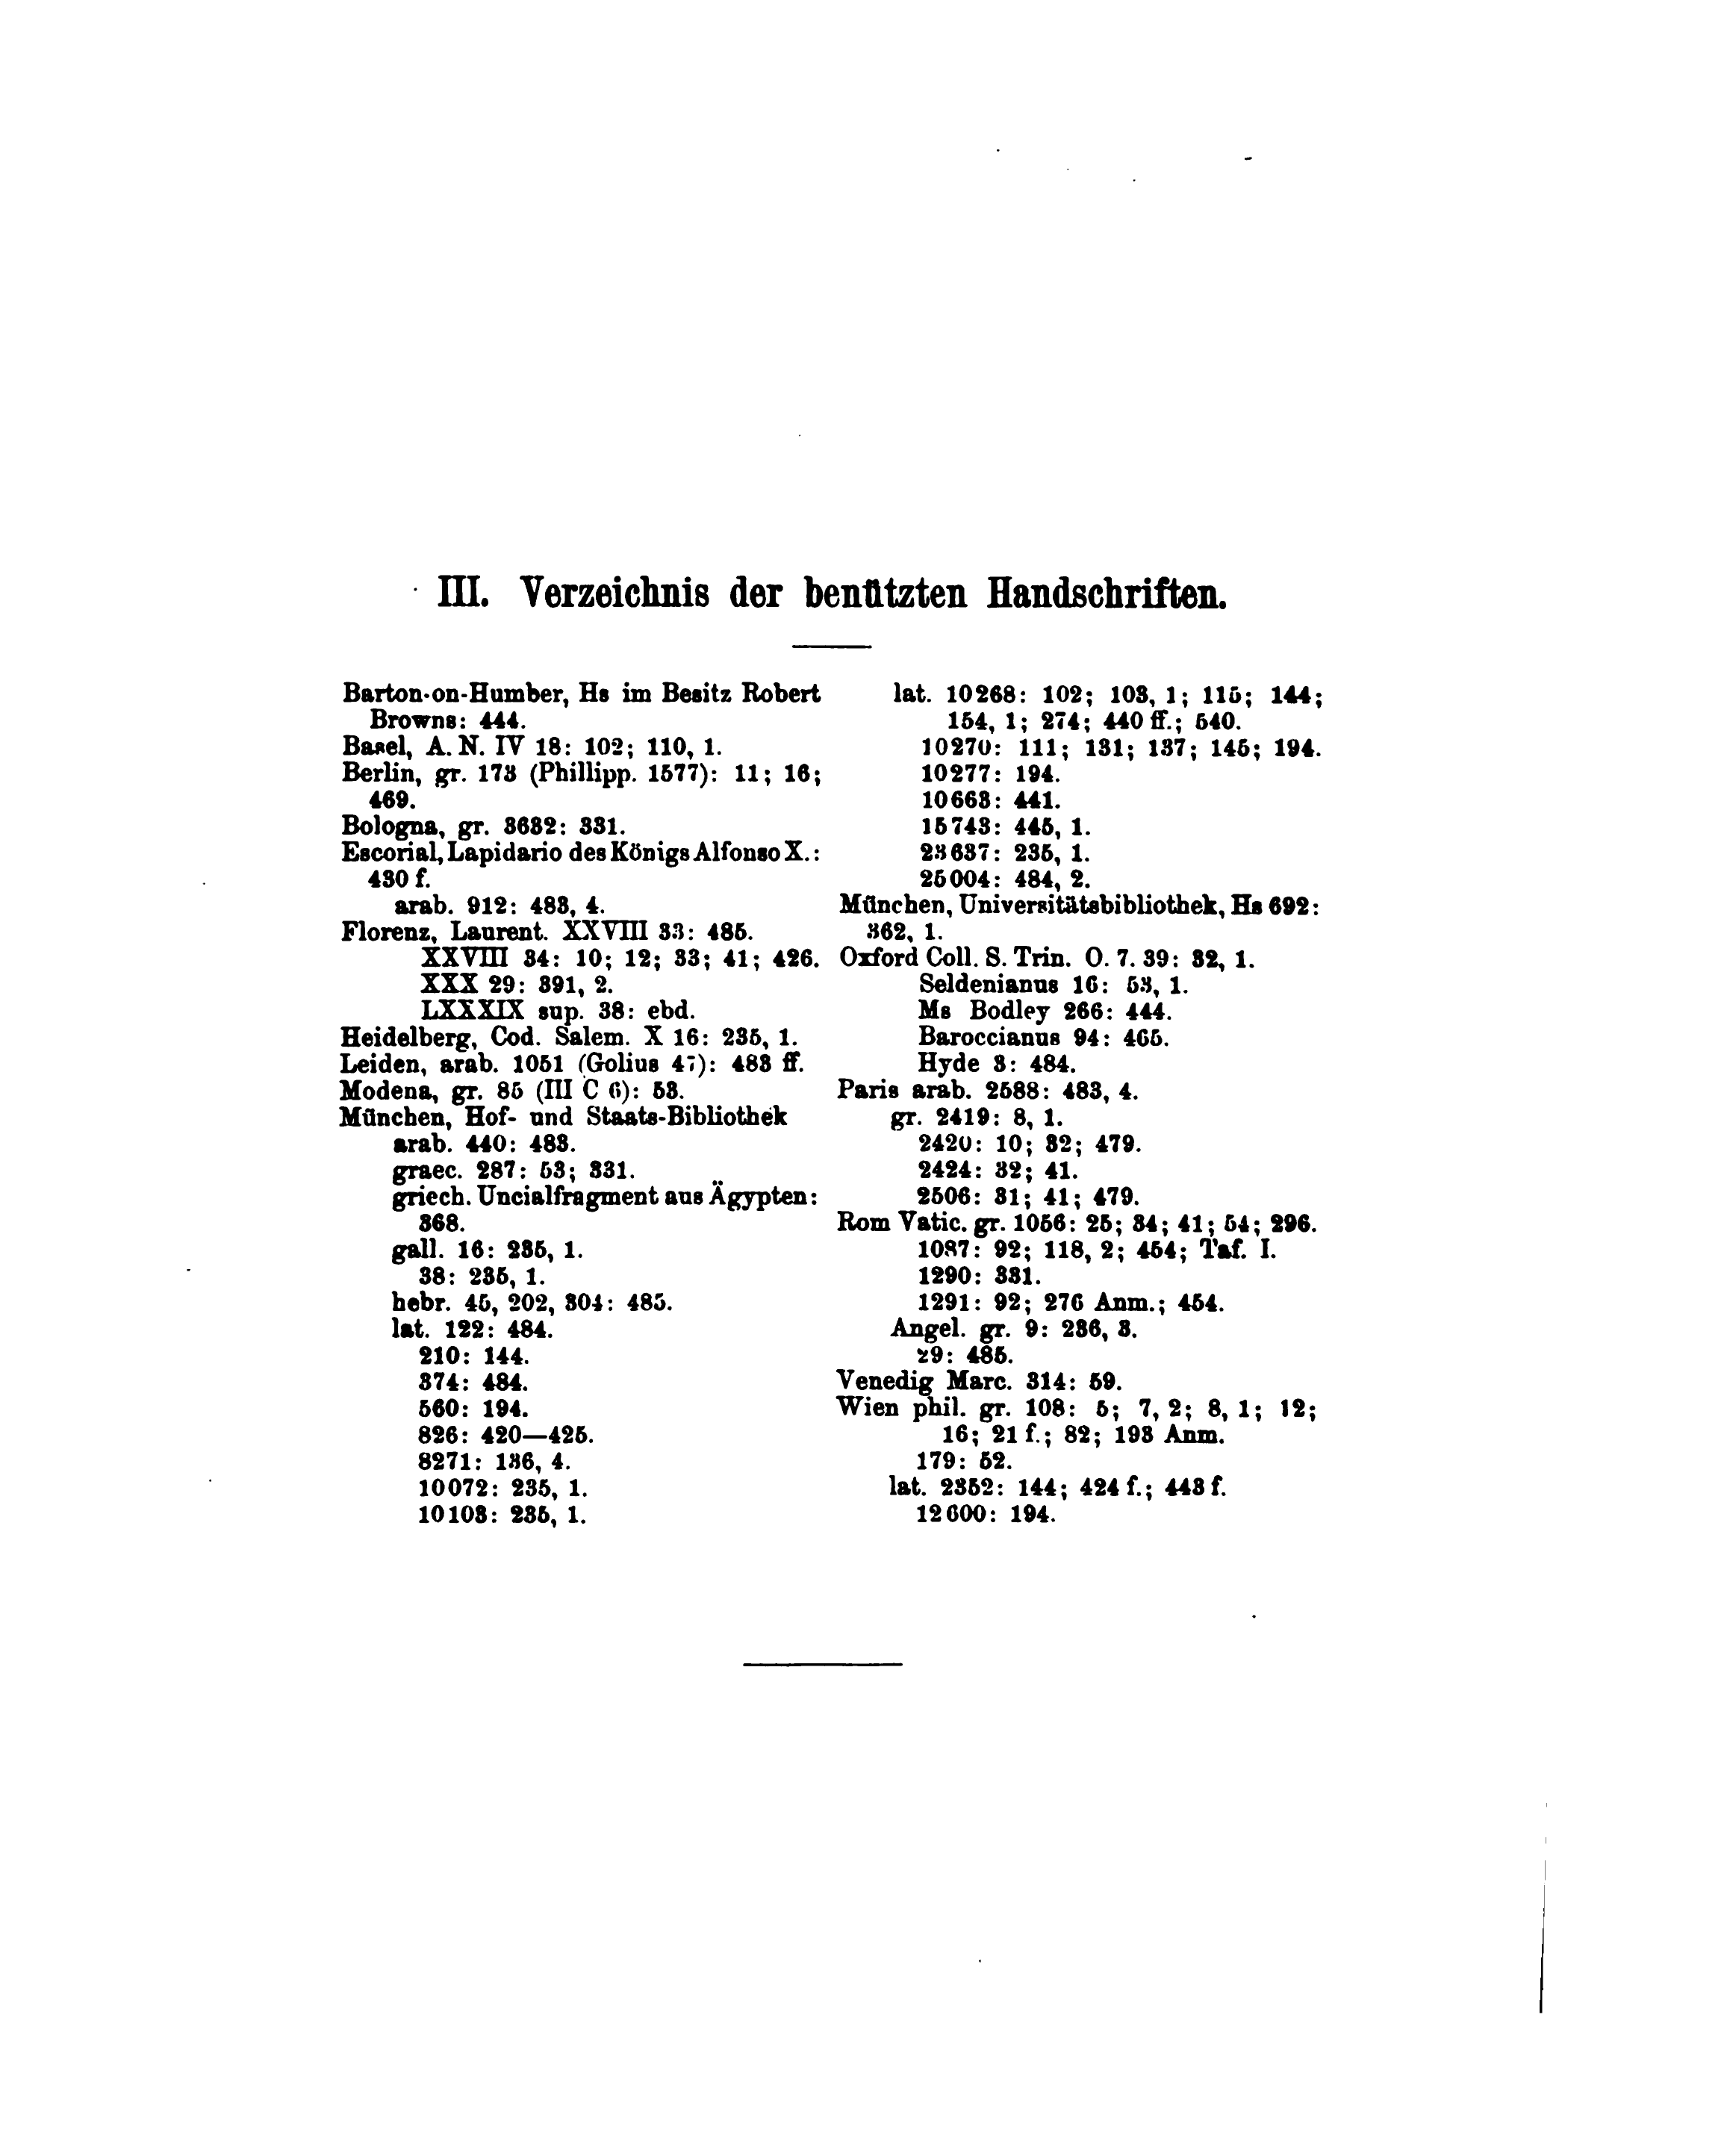 III. Verzeichnis der benützten Handschriften.
Barton-on-Humber, Hs im Besitz Robert
Browns: 444.
Basel, A. N. IV 18: 102; 110, 1.
Berlin, gr. 173 (Phillipp. 1577): 11; 16;
469.
Bologna, gr. 3632: 331.
Escorial, Lapidario des Königs Alfonso X.:
430 f.
arab. 912: 483, 4.
Florenz, Laurent. XXVIII 33: 485.
XXVIII 34: 10; 12; 33; 41; 426.
XXX 29: 391, 2.
LXXXIX sup. 38: ebd.
Heidelberg, Cod. Salem. X 16: 235, 1.
Leiden, arab. 1051 (Golius 47): 483 ff.
Modena, gr. 85 (III C 6): 53.
München, Hof- und Staats-Bibliothek
arab. 440: 483.
graec. 287: 53; 331.
griech. Uncialfragment aus Ägypten:
368.
gall. 16: 235, 1.
38: 235, 1.
hebr. 45, 202, 304: 485.
lat. 122: 484.
210: 144.
374: 484.
560: 194.
826: 420—425.
8271: 136, 4.
10072: 235, 1.
10103: 235, 1.
lat. 10268: 102; 103, 1; 115; 144;
154, 1; 274; 440 ff.; 540.
10270: 111; 131; 137; 145; 194.
10277: 194.
10663: 441.
15743: 445, 1.
23637: 235, 1.
25004: 484, 2.
München, Universitätsbibliothek, Hs 692:
362, 1.
Oxford Coll. S. Trin. O. 7. 39: 32, 1.
Seldenianus 16: 53, 1.
Ms Bodley 266: 444.
Baroccianus 94: 465.
Hyde 3: 484.
Paris arab. 2588: 483, 4.
gr. 2419: 8, 1.
2420: 10; 32; 479.
2424: 32; 41.
2506: 31; 41; 479.
Rom Vatic. gr. 1056: 25; 34; 41; 54; 296.
1087: 92; 118, 2; 454; Taf. I.
1290: 331.
1291: 92; 276 Anm.; 454.
Angel. gr. 9: 236, 3.
29: 485.
Venedig Marc. 314: 59.
Wien phil. gr. 108: 5; 7, 2; 8, 1; 12;
16; 21 f.; 82; 193 Anm.
179: 52.
lat. 2352: 144; 424 f.; 443 f.
12600: 194.